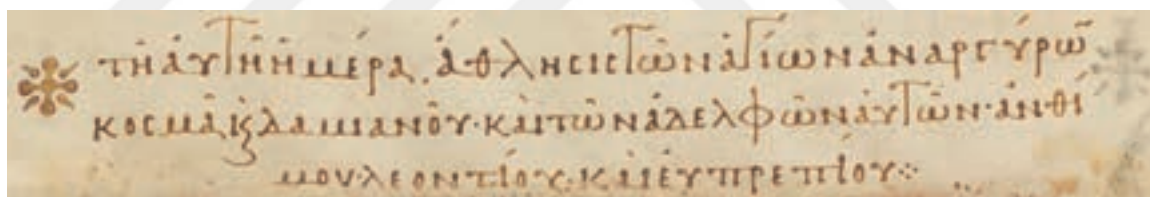 τῇ ἀυτῇ ἡμέρᾳ. ἄθλησις τῶν ἁγίων ἀναργύρω̃
κοσμᾶ ϗ δαμιανοῦ· καὶ τῶν ἀδελφῶν ἀυτῶν· ἀνθί
μου λεοντίου· καὶ ἐυπρεπίου·: